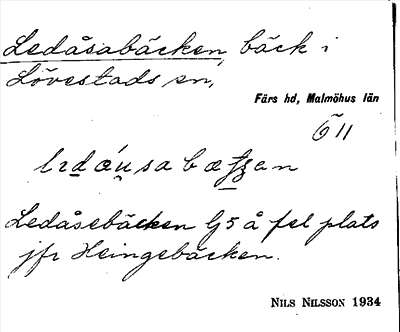 Ledåsabäcken, bäck i
Lövestads sn,
Färs hd, Malmöhus län
611
Ledåsebäcken G5 å fel plats
jfr Heingebäcken.
NILS NILSSON 1934